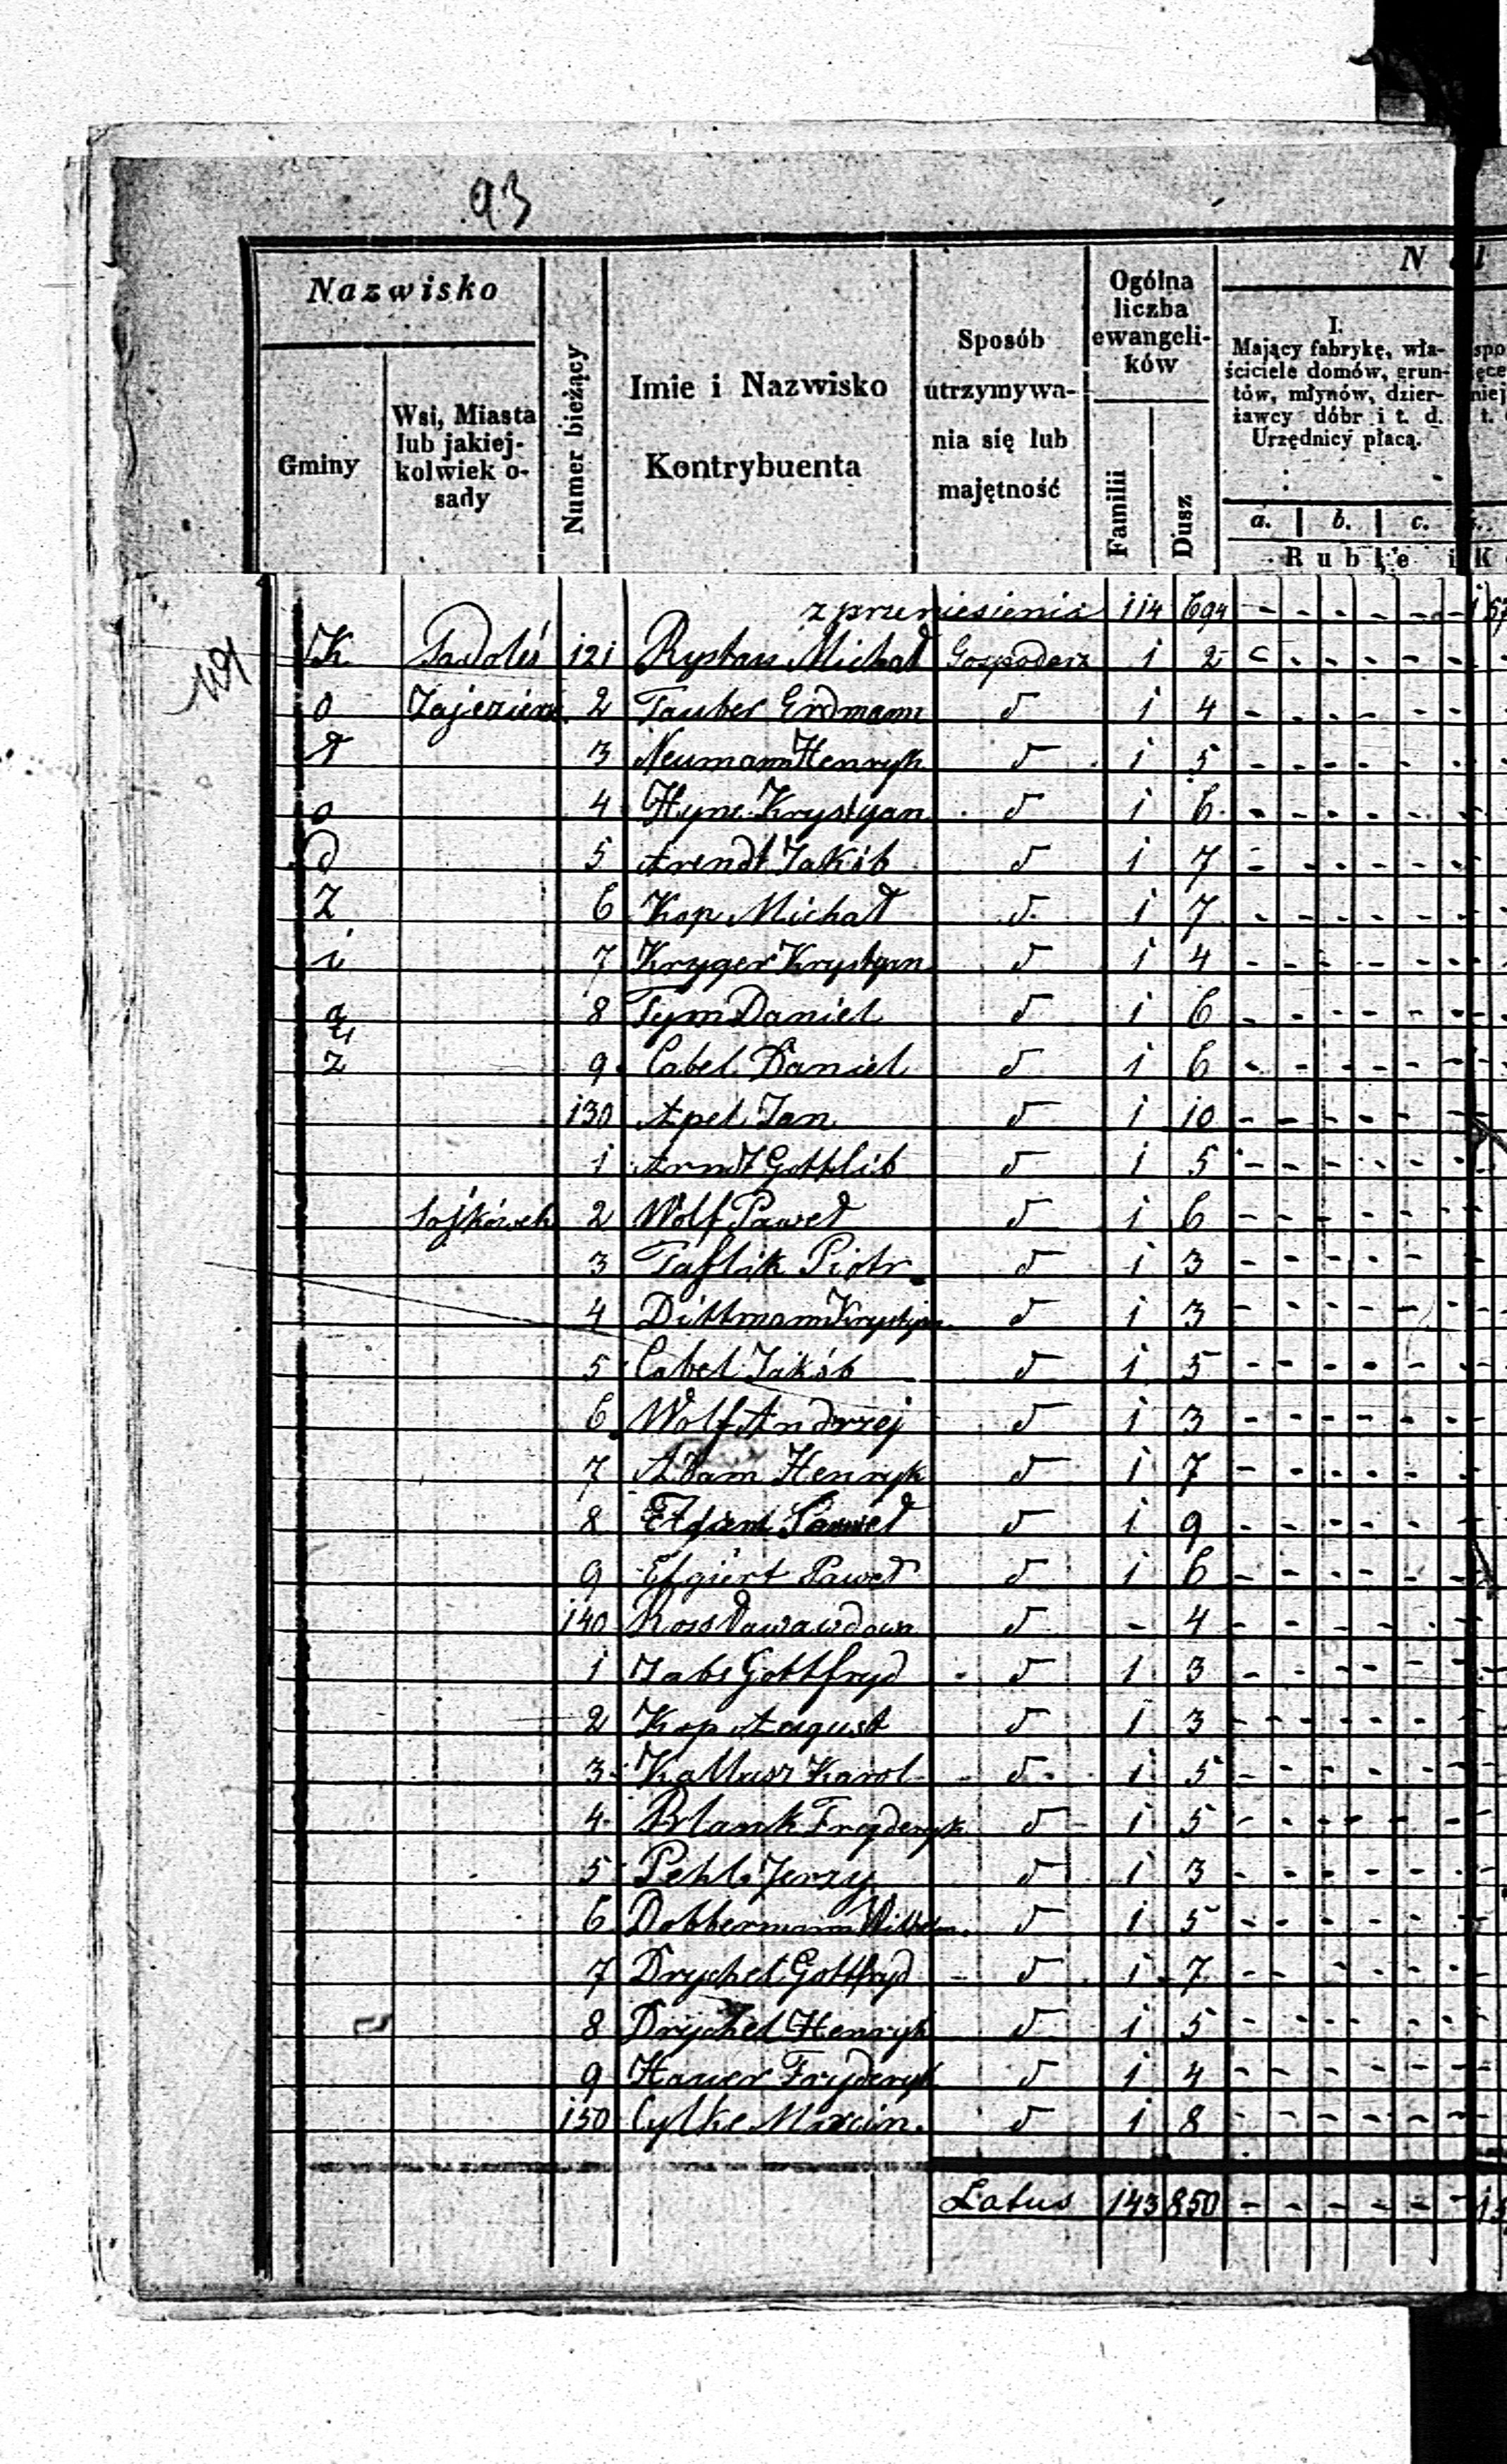 93
Nazwisko
Gminy
Wsi, Miasta lub jakiej-kolwiek o-sady
Numer bieżący
Imie i Nazwisko Kontrybuenta
Sposób utrzymywa-nia się lub majętność
Ogólna liczba ewangeli-ków
Familii
Dusz
I. Mający fabrykę, wła-ściciele domów, grun-tów, młynów, dzier-żawcy dóbr i t. d. Urzędnicy płacą.
a. b. c.
Ruble i K
z przeniesienia 114 694 - - - - - -
K Padołis 121 Michał Gospodarz 1 2 - - - - -
o 2 Tauber Erdmann d 1 4 - - - - - -
3 Neumann Henryk d 1 5 - - - - - -
o 4 Hyne Krystyan d 1 6 - - - - - -
d 5 Arendt Jakób d 1 7 - - - - - -
Z 6 Kop Michał d 1 7 - - - - - -
i 7 Kryger Krystyan d 1 4 - - - - - -
ą 8 Tym Daniel d 1 6 - - - - - -
z 9 Cabel Daniel d 1 6 - - - - - -
130 Apel Jan d 1 10 - - - - - -
1 Arndt Gottlib d 1 5 - - - - - -
Sojkówek 2 Wolf Paweł d 1 6 - - - - - -
3 Taflik Piotr d 1 3 - - - - - -
4 Dittmann Krystyan d 1 3 - - - - - -
5 Cabel Jakób d 1 5 - - - - - -
6 Wolf Andrzej d 1 3 - - - - - -
7 Adam Henryk d 1 7 - - - - - -
8 Paweł d 1 9 - - - - - -
9 Efgiert Paweł d 1 6 - - - - - -
140 d - 4 - - - - - -
1 Jabs Gottfryd d 1 3 - - - - - -
2 Kop August d 1 3 - - - - - -
3 Karol d 1 5 - - - - - -
4 Blank Fryderyk d 1 5 - - - - - -
5 Pehl Jerzy d 1 3 - - - - - -
6 Dobbermann Wilhelm d 1 5 - - - - - -
7 Drychel Gottfryd d 1 7 - - - - - -
8 Drychel Henryk d 1 5 - - - - - -
9 Hauer Fryderyk d 1 4 - - - - - -
150 Cylke Marcin d 1 8 - - - - - -
Latus 143 850 - - - - - -